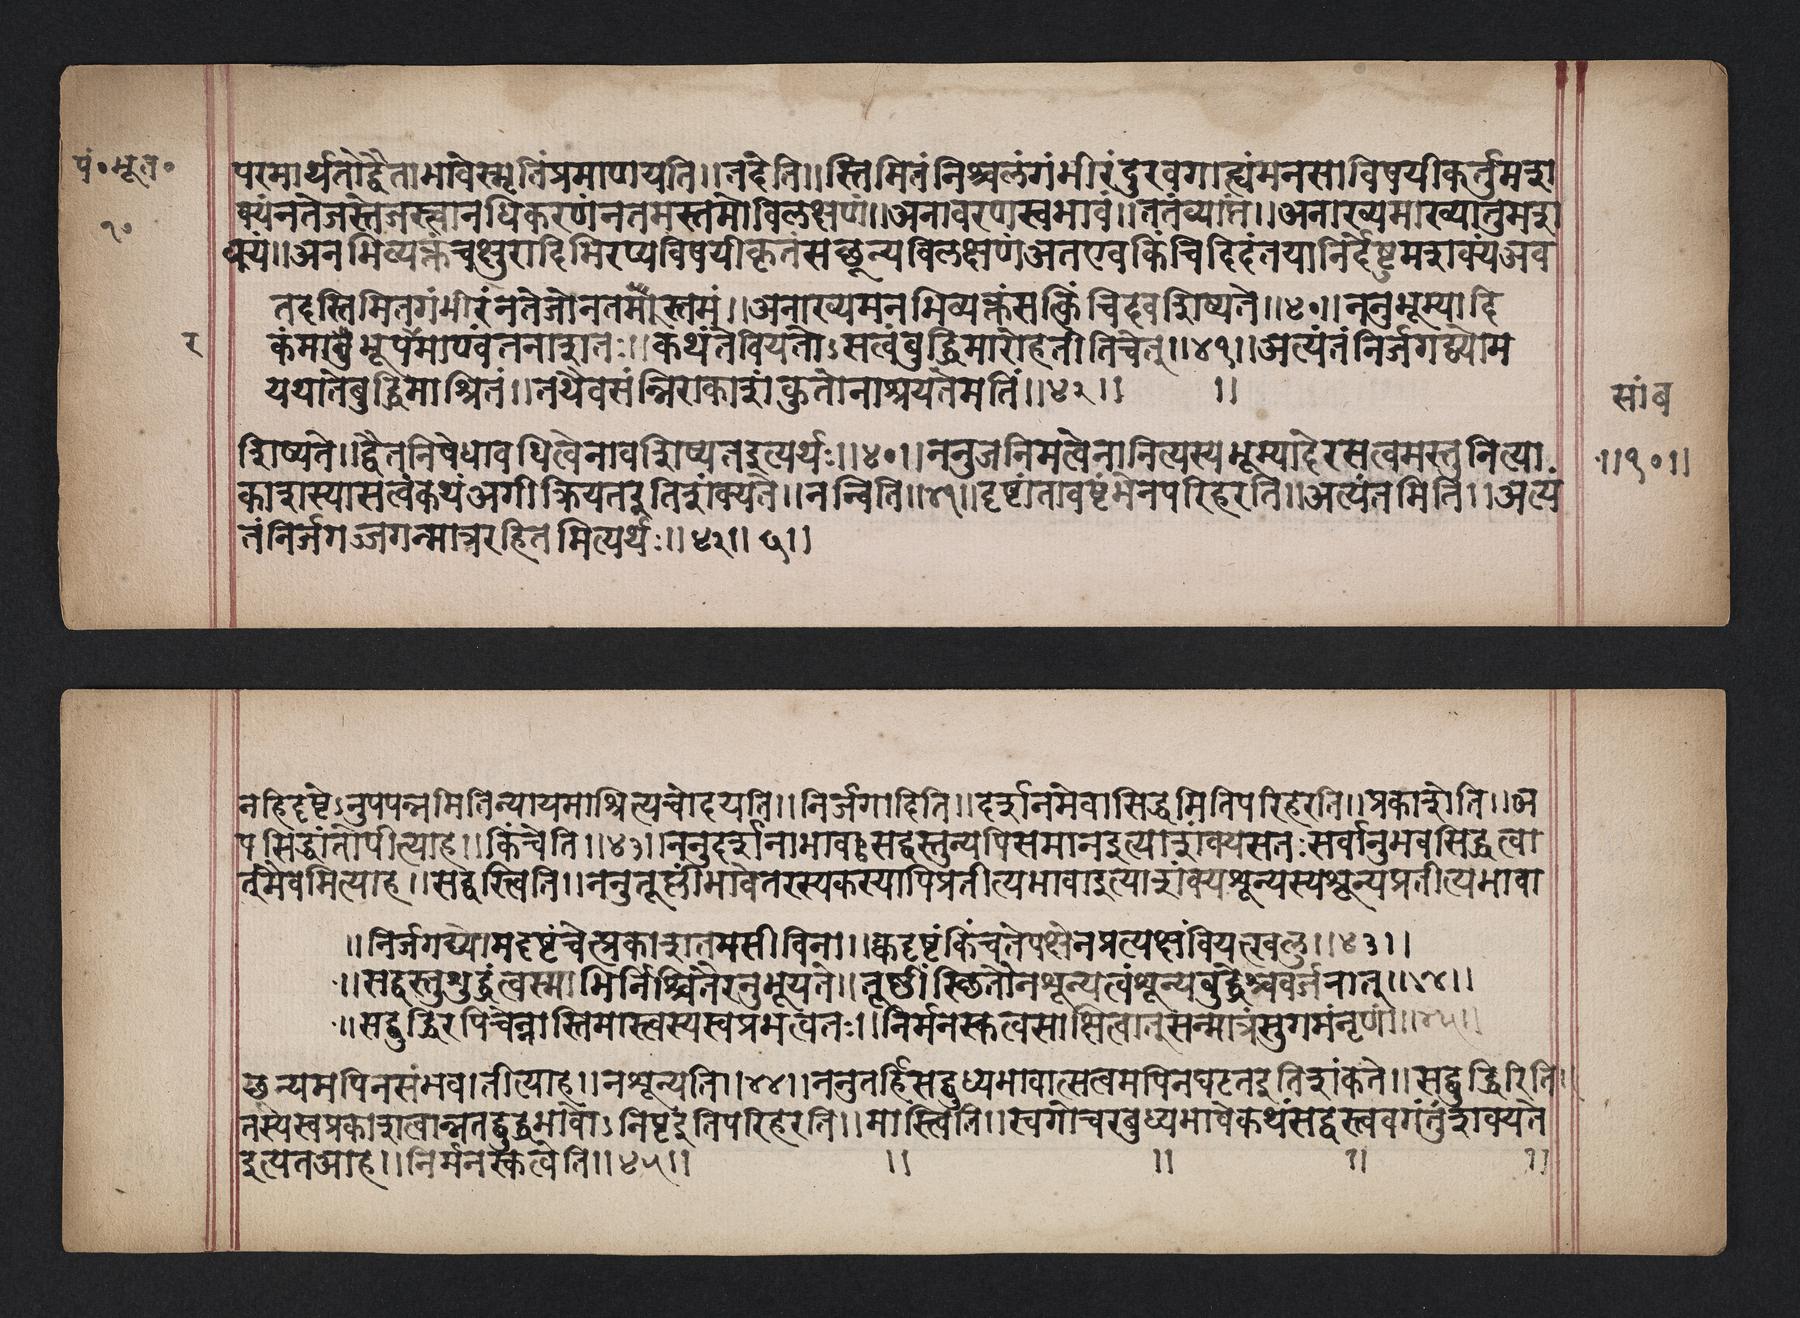 पं॰भूत॰
१०
परमार्थतोद्वैताभावेस्मृतिंप्रमाणयति।।तदेति।।स्तिमितंनिश्चलंगंभीरंदुरवगाह्यंमनसाविषयीकर्तुमशा
क्यंनतेजस्तेजस्त्वानधिकरणंनतमस्तमोविलक्षणं।।अनावरणस्वभावं।।ततंव्याप्तं।।अनाख्यमाख्यातुमशा
क्यं।।अनभिव्यक्तंचक्षुरादिभिरप्यविषयीकृतंसच्छून्यविलक्षणंअतएवकिंचिदिदंतयानिर्देष्टुमशक्यंअव
तदास्तिमितगंभीरंनतेजोनतमस्ततं।।अनाख्यमनभिव्यक्तंसत्किंचिदवशिष्यते।।४०।।ननुभूम्यादि
र
कंमाभूत्परमाण्वंतनाशतः।।कथंतेवियतोऽसत्वंबुद्धिमारोहतीतिचेत्।।४१।।अत्यंतंनिर्जगद्व्योम
यथातेबुद्धिमाश्रितं।।तथैवसंन्निराकाशंकुतोनाश्रयतेमतिं।।४२।। ।।
सांब
शिष्यते।।द्वैतनिषेधावधित्वेनावशिष्यतइत्यर्थः।।४०।।ननुजनिमत्वेनानित्यस्यभूम्यादेरसत्वमस्तुनित्या
।।१०।।
काशस्यासत्वंकथंअंगीक्रियतइतिशंक्यते।।नन्विति।।४१।।दृष्टांतावष्टंभेनपरिहरति।।अत्यंतमिति।।अत्यं
तंनिर्जगज्जगन्मात्ररहितमित्यर्थः।।४२।।५।।
नहिदृष्टेऽनुपपन्नमितिन्यायमाश्रित्यचोदयति।।निर्जगादिति।।दर्शनमेवासिद्धमितिपरिहरति।।प्रकाशेति।।अ
पसिद्धांतोपीत्याह।।किंचेति।।४३।।ननुदर्शनाभावःसद्वस्तुन्यपिसमानइत्याशंक्यसतःसर्वानुभवसिद्धत्वा
त्मैवमित्याह।।सद्वस्त्विति।।ननुतूष्णींभावेतरस्यकस्यापिप्रतीत्यभावादित्याशंक्यशून्यस्यशून्यप्रतीत्यभावा
।।निर्जगद्व्योमदृष्टंचेत्प्रकाशतमसीविना।।क्वदृष्टंकिंचतेपक्षेनप्रत्यक्षंवियत्खलु।।४३।।
।।सद्वस्तुशुद्धंत्वस्माभिर्निश्चिंतैरनुभूयते।।तूष्णींस्थितौनशून्यत्वंशून्यबुद्धेश्चवर्जनात्।।४४।।
।।सद्बुद्धिरपिचेन्नास्तिमास्त्वस्यस्वप्रभत्वतः।।निर्मनस्कत्वसाक्षित्वात्सन्मात्रंसुगमंनृणां।।४५।।
छून्यमपिनसंभवातीत्याह।।नशून्यति।।४४।।ननुतर्हिसद्बुध्यभावात्सत्वमपिनघटतइतिशंकते।।सद्बुद्धिरिति।।
तस्यस्वप्रकाशत्वान्नतद्बुद्धभावोऽनिष्टइतिपरिहरति।।मास्त्विति।।स्वगोचरबुध्यभावेकथंसद्वस्त्ववगंतुंशक्यते
इत्यतआह।।निर्मनस्कत्वेति।।४५।। ।। ।। ।। ।।